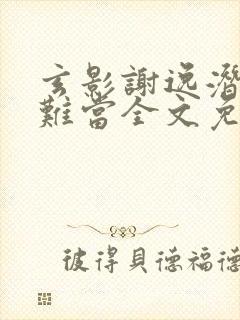 玄影謝逸潛
難當全文免
彼得貝德福德